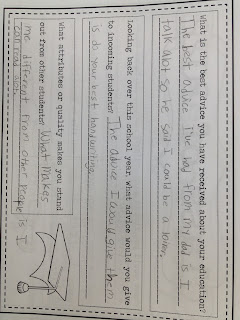 What is the best advice you have received about your education?
The best advice I've had from my dad is I
talk alot so he said I could be a loyer.
Looking back over this school year, what advice would you give
to incoming students? The advice I would give them
is do your best handwriting.
What attributes or quality makes you stand
out from other students? What makes
me different from other people is I
can read alot.